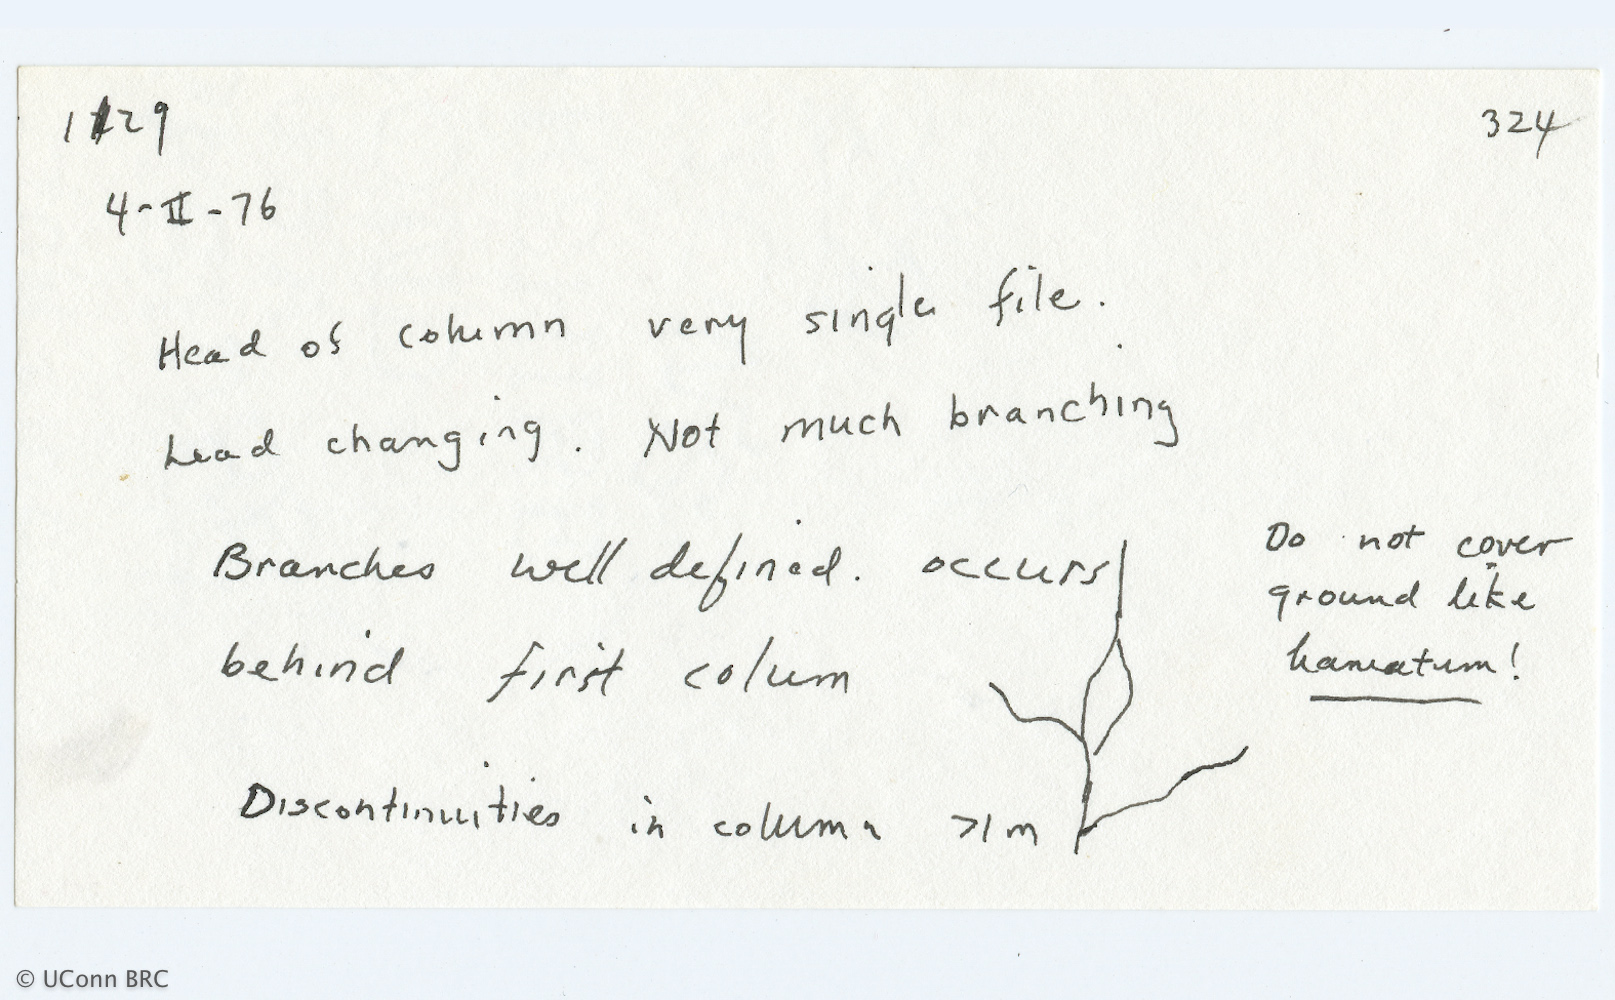 1129
324
4-II-76
Head of column very single file.
Lead changing. Not much branching
Branches well defined. occurs
behind first colum
Do not cover
ground like
hamatum!
Discontinuities in column >1 m
© UConn BRC